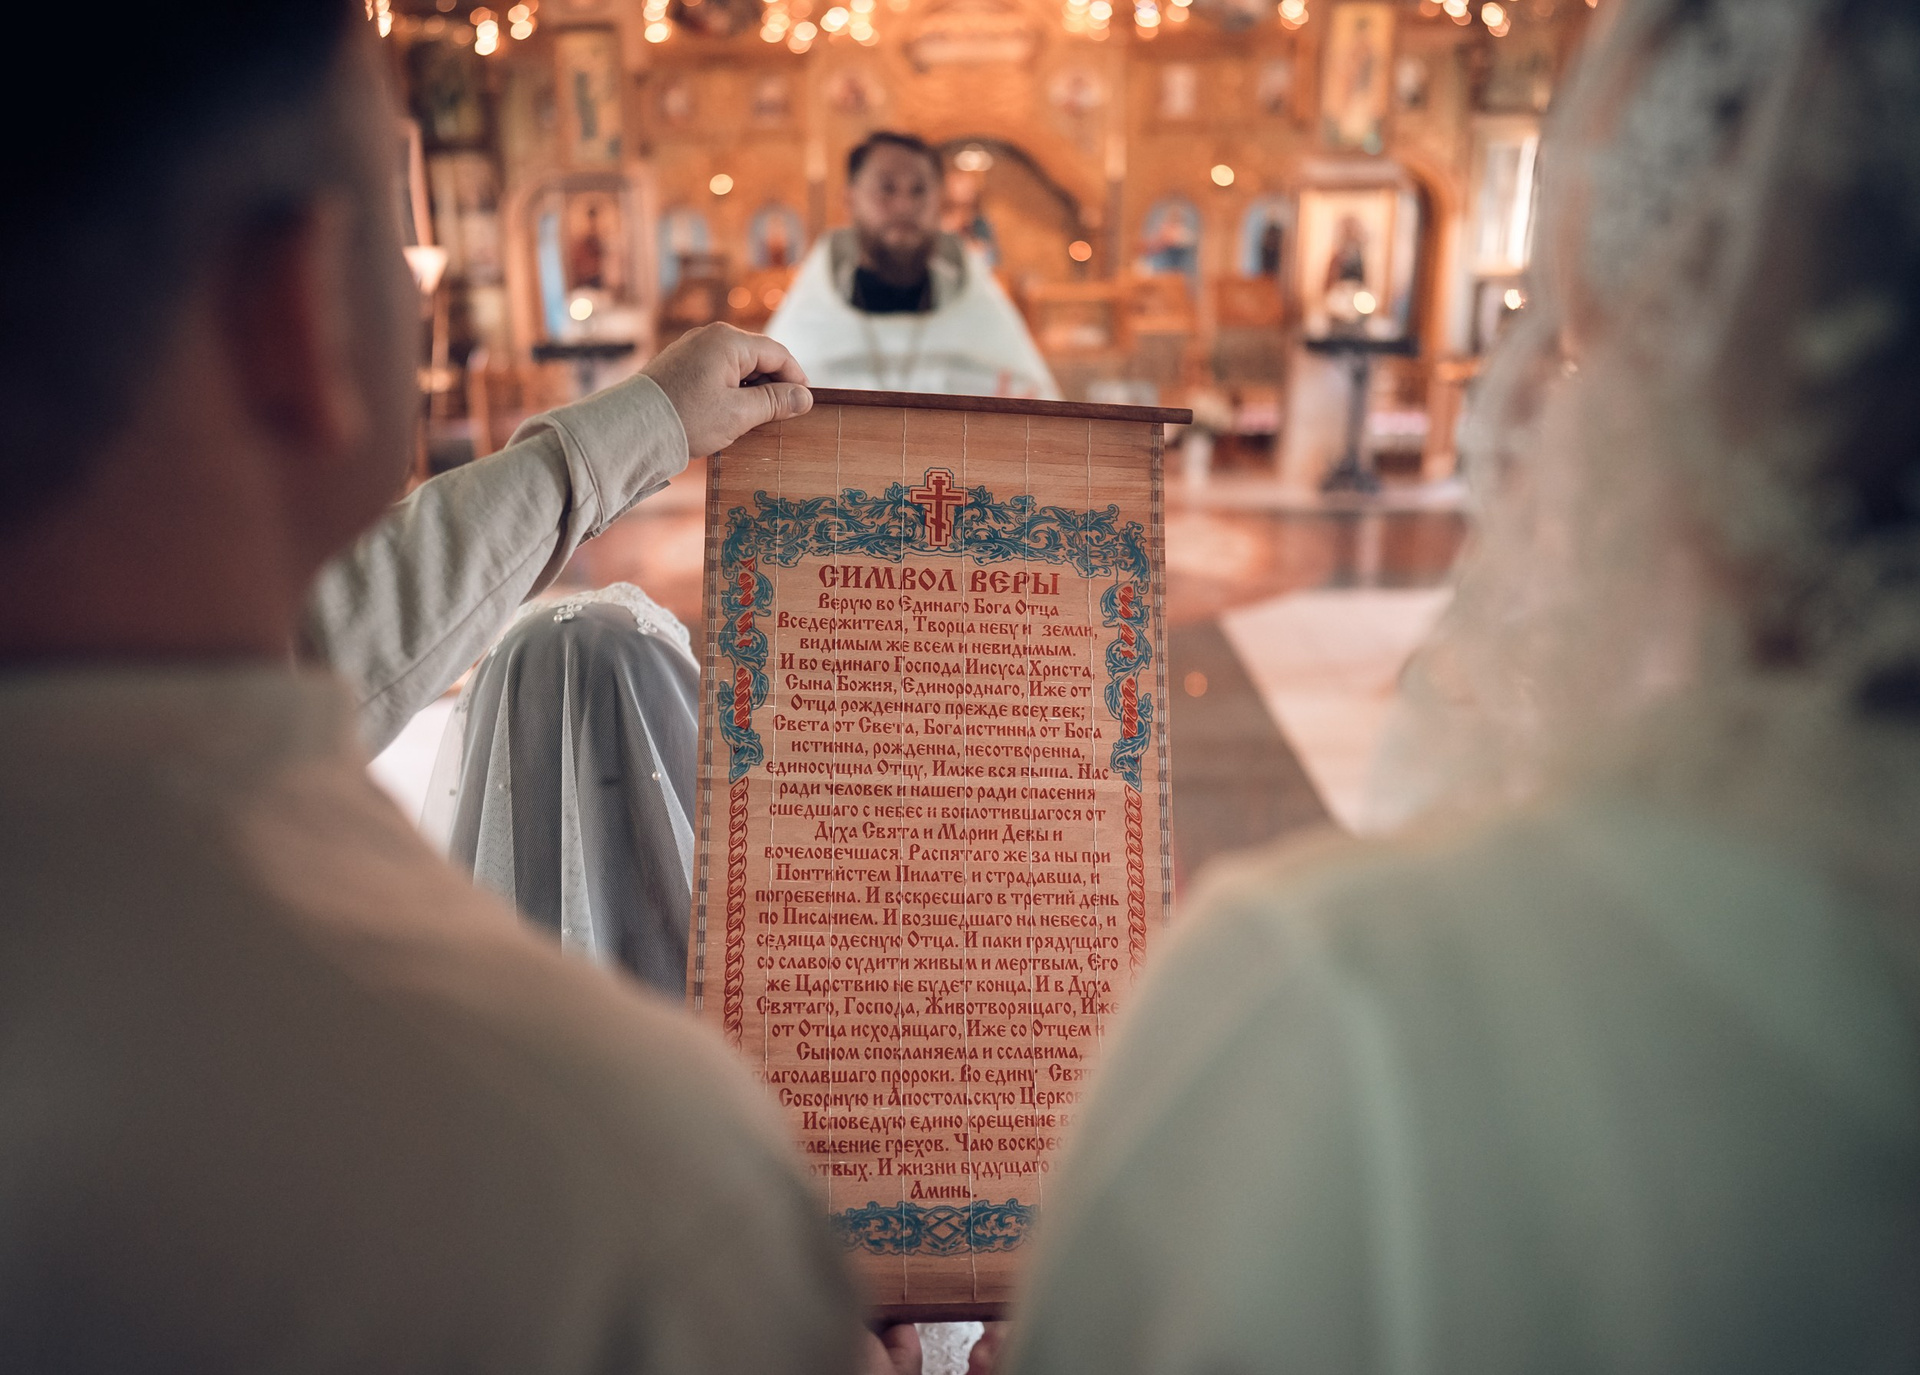 СИМВОЛ ВЕРЫ
Верую во Единаго Бога Отца
Вседержителя, Творца небу и земли,
видимым же всем и невидимым.
И во единаго Господа Иисуса Христа,
Сына Божия, Единороднаго, Иже от
Отца рожденнаго прежде всех век;
Света от Света, Бога истинна от Бога
истинна, рожденна, несотворенна,
единосущна Отцу, Имже вся быша. Нас
ради человек и нашего ради спасения
сшедшаго с небес и воплотившагося от
Духа Свята и Марии Девы и
вочеловечшася. Распятаго же за ны при
Понтийстем Пилате, и страдавша, и
погребенна. И воскресшаго в третий день
по Писанием. И возшедшаго на небеса, и
седяща одесную Отца. И паки грядущаго
со славою судити живым и мертвым, Его
же Царствию не будет конца. И в Духа
Святаго, Господа, Животворящаго, Иже
от Отца исходящаго, Иже со Отцем и
Сыном спокланяема и сславима,
глаголавшаго пророки. Во едину
Соборную и Апостольскую
Исповедую едино крещение
грехов. Чаю
И жизни будущаго
Аминь.